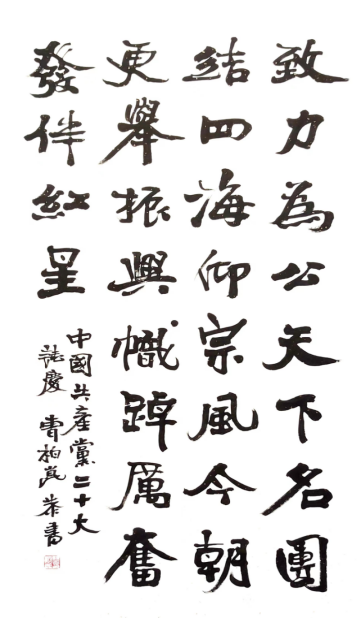 致力為公天下名團
結四海仰宗風今朝
更舉振興幟踔厲奮
發伴紅星
中國共產黨二十大
誌慶 曹柏 恭書